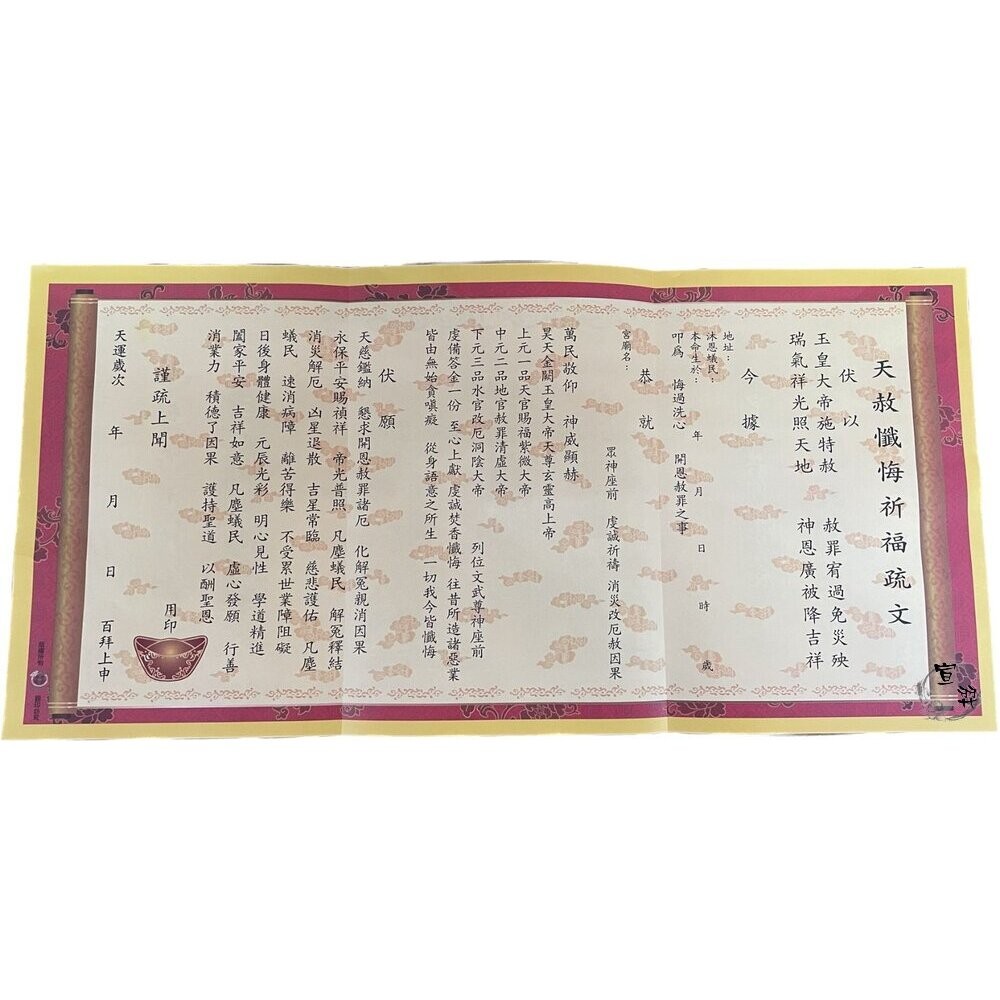 天赦懺悔祈福疏文
伏以
玉皇大帝施特赦　赦罪宥過免災殃
瑞氣祥光照天地　神恩廣被降吉祥
今據
地址：
沐恩蟻民：
本命生於：　年　月　日　時　歲
叩為　悔過洗心　開恩赦罪之事
恭就
宮廟名：　眾神座前　虔誠祈禱　消災改厄赦因果
萬民敬仰　神威顯赫
昊天金闕玉皇大帝天尊玄靈高上帝
上元一品天官賜福紫微大帝
中元二品地官赦罪清虛大帝
下元三品水官改厄洞陰大帝　列位文武尊神座前
虔備答金一份　至心上獻　虔誠焚香懺悔　往昔所造諸惡業
皆由無始貪嗔癡　從身語意之所生　一切我今皆懺悔
伏願
天慈鑑納　懇求開恩赦罪諸厄　化解冤親消因果
永保平安賜禎祥　帝光普照　凡塵蟻民　解冤釋結
消災解厄　凶星退散　吉星常臨　慈悲護佑　凡塵
蟻民　速消病障　離苦得樂　不受累世業障阻礙
日後身體健康　元辰光彩　明心見性　學道精進
闔家平安　吉祥如意　凡塵蟻民　虛心發願　行善
消業力　積德了因果　護持聖道　以酬聖恩
謹疏上聞
用印
天運歲次　年　月　日　百拜上申
宣